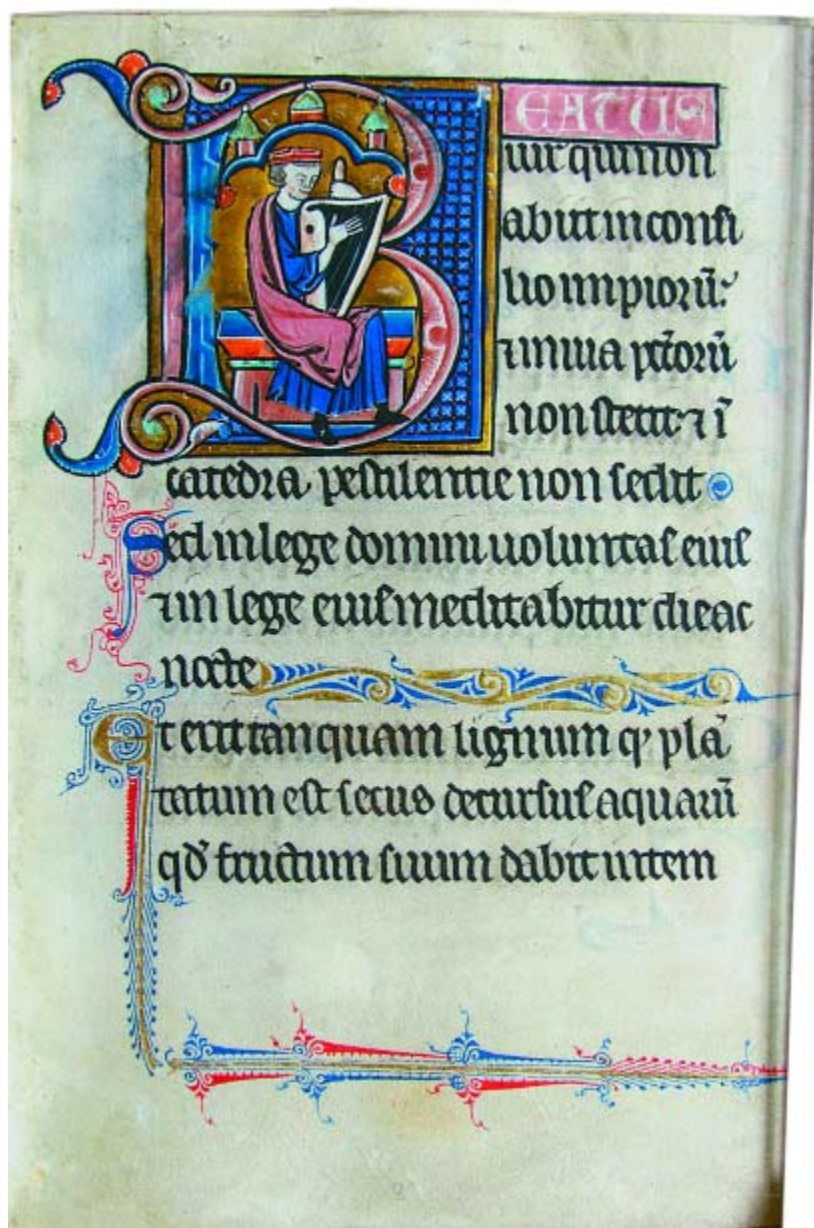 BEATUS
uir qui non
abiit in consi
lio impiorū:
⁊ in uia pctōrū
non stetit: ⁊ ī
catedra pestilentie non sedit
Sed in lege domini uoluntas eius
⁊ in lege eius meditabitur die ac
nocte
Et erit tanquam lignum qͥ plā
tatum est secus decursus aquarū
qd̄ fructum suum dabit in tem